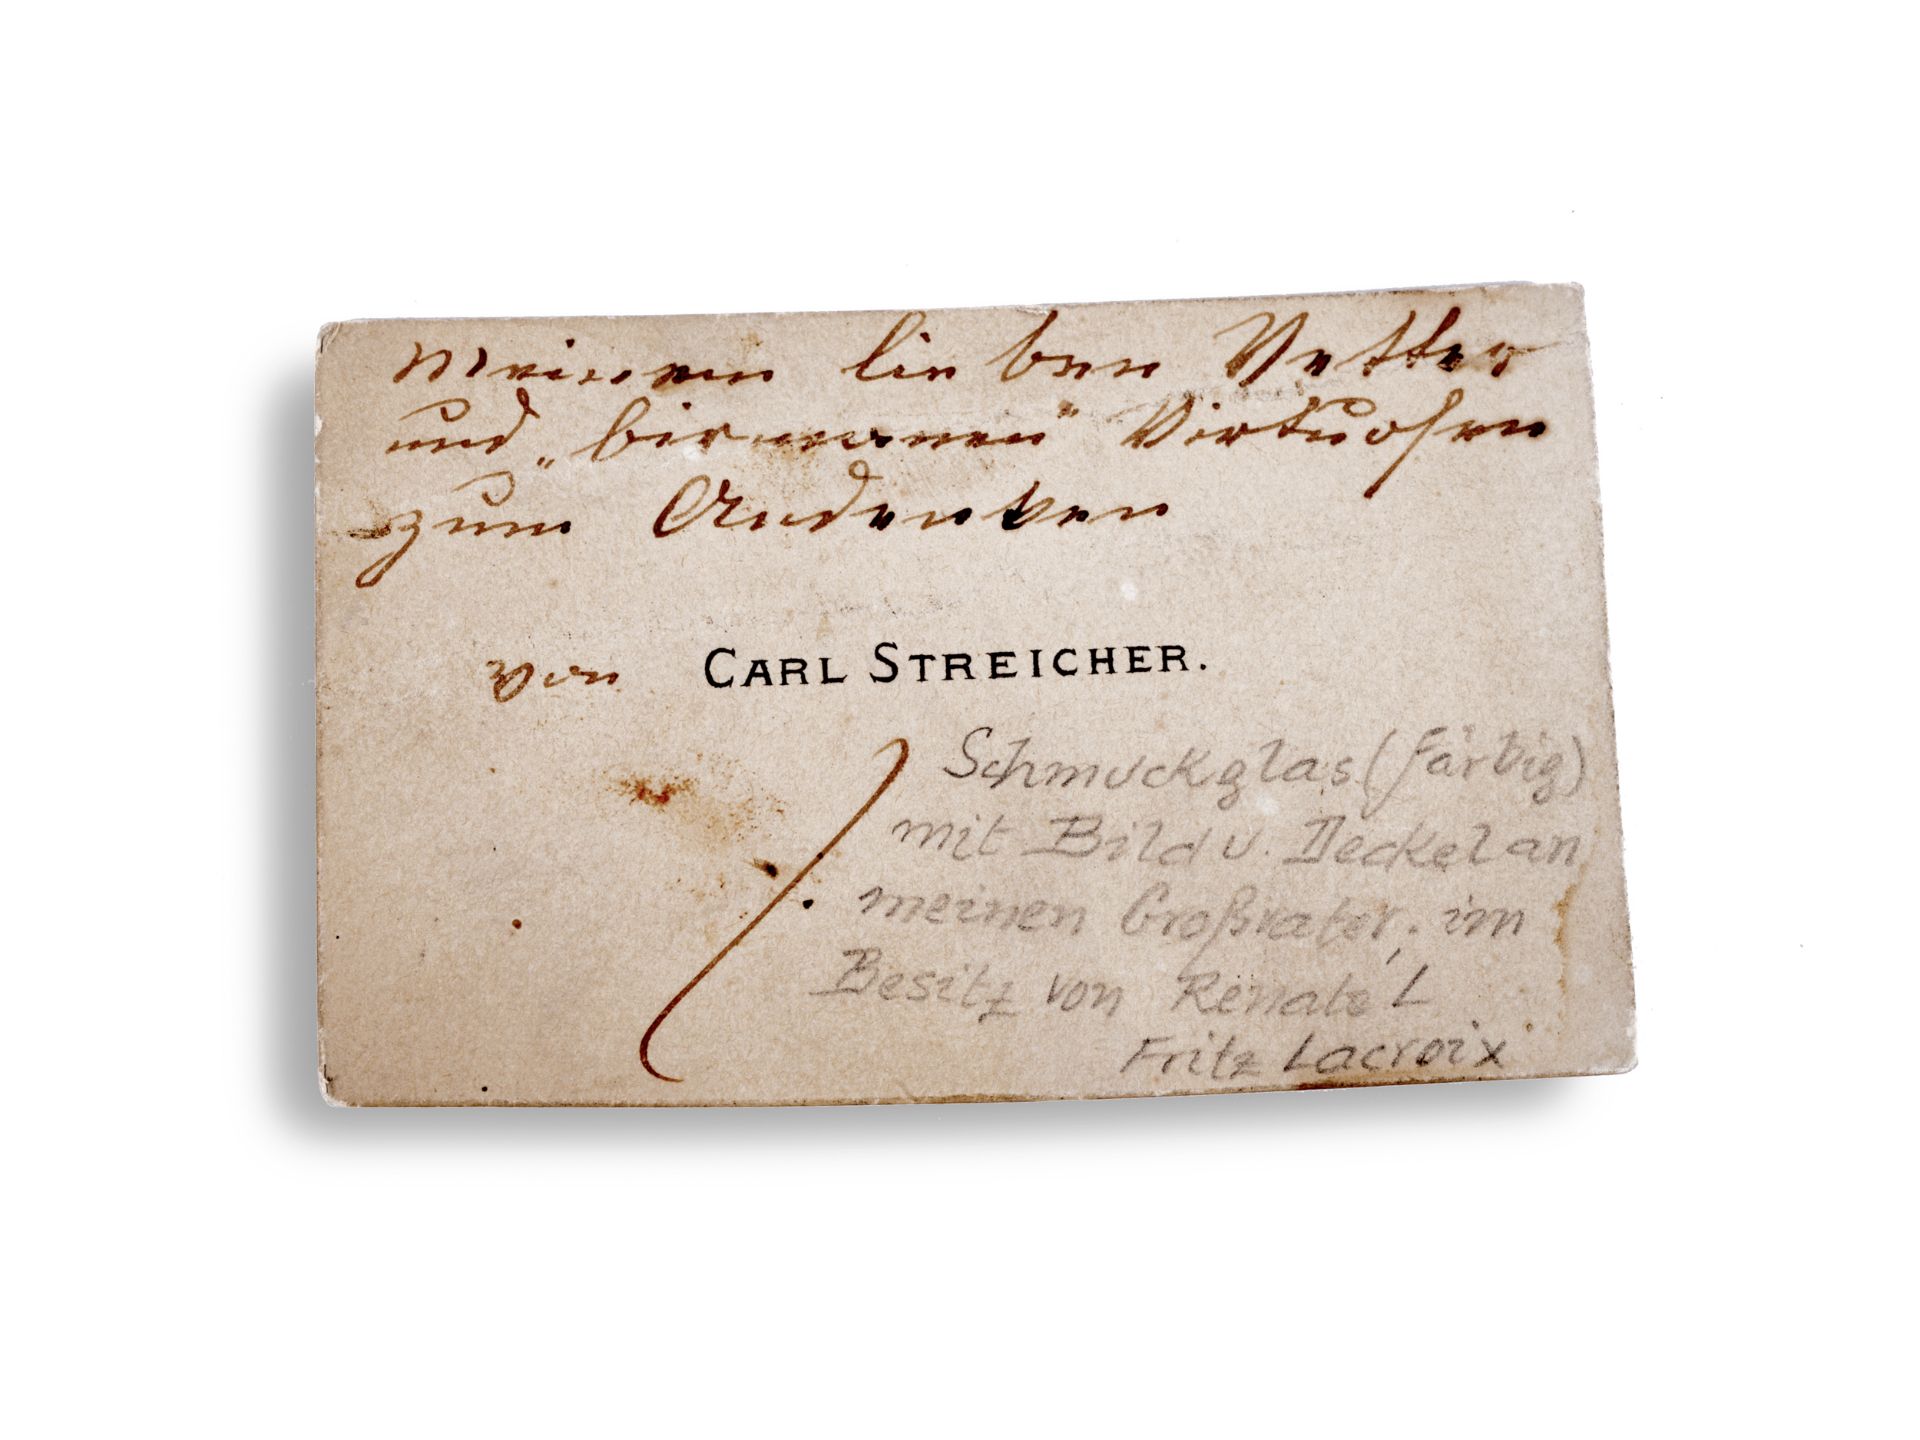 Meinem lieben Vetter
und „birmanen“ Virtuosen
zum Andenken
von CARL STREICHER.
Schmuckglas (färbig)
mit Bild u. Deckel an
meinen Großvater, im
Besitz von Renate L
Fritz Lacroix